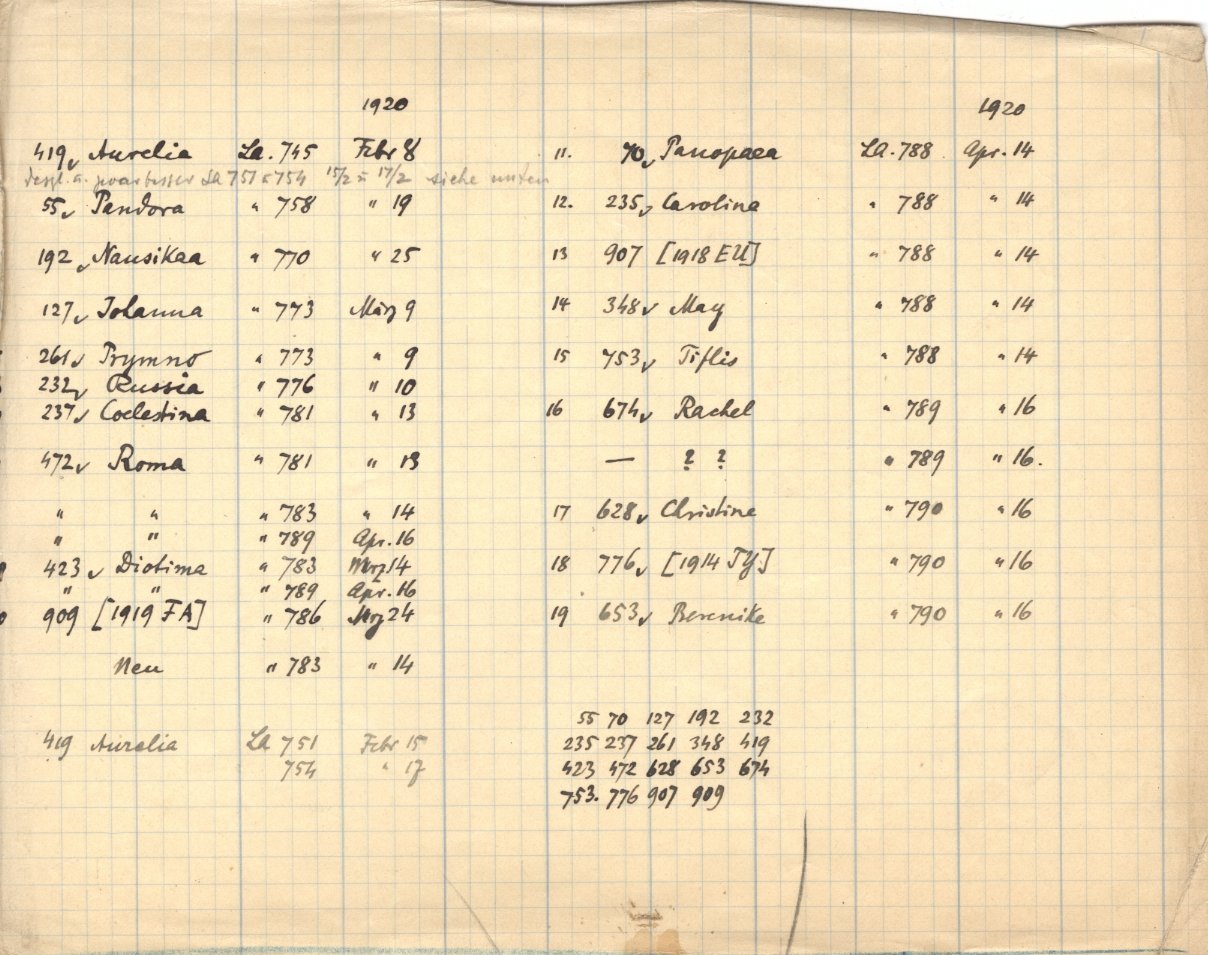 1920
419 ✓ Aurelia La. 745 Febr 8
La 751 u 754 15/2 u 17/2 siehe unten
55 ✓ Pandora " 758 " 19
192 ✓ Nausikaa " 770 " 25
127 ✓ Johanna " 773 März 9
261 ✓ Prymno " 773 " 9
232 ✓ Russia " 776 " 10
237 ✓ Coelestina " 781 " 13
472 ✓ Roma " 781 " 13
" " " 783 " 14
" " " 789 Apr. 16
423 ✓ Diotima " 783 Mrz 14
" " " 789 Apr. 16
909 [1919 FA] " 786 Mrz 24
Neu " 783 " 14
419 Aurelia La 751 Febr 15
754 " 17
1920
11. 70 ✓ Panopaea La. 788 Apr. 14
12. 235 ✓ Carolina " 788 " 14
13 907 [1918 EU] " 788 " 14
14 348 ✓ May " 788 " 14
15 753 ✓ Tiflis " 788 " 14
16 674 ✓ Rachel " 789 " 16
— ? ? " 789 " 16.
17 628 ✓ Christine " 790 " 16
18 776 ✓ [1914 TY] " 790 " 16
19 653 ✓ Berenike " 790 " 16
55 70 127 192 232
235 237 261 348 419
423 472 628 653 674
753. 776 907 909